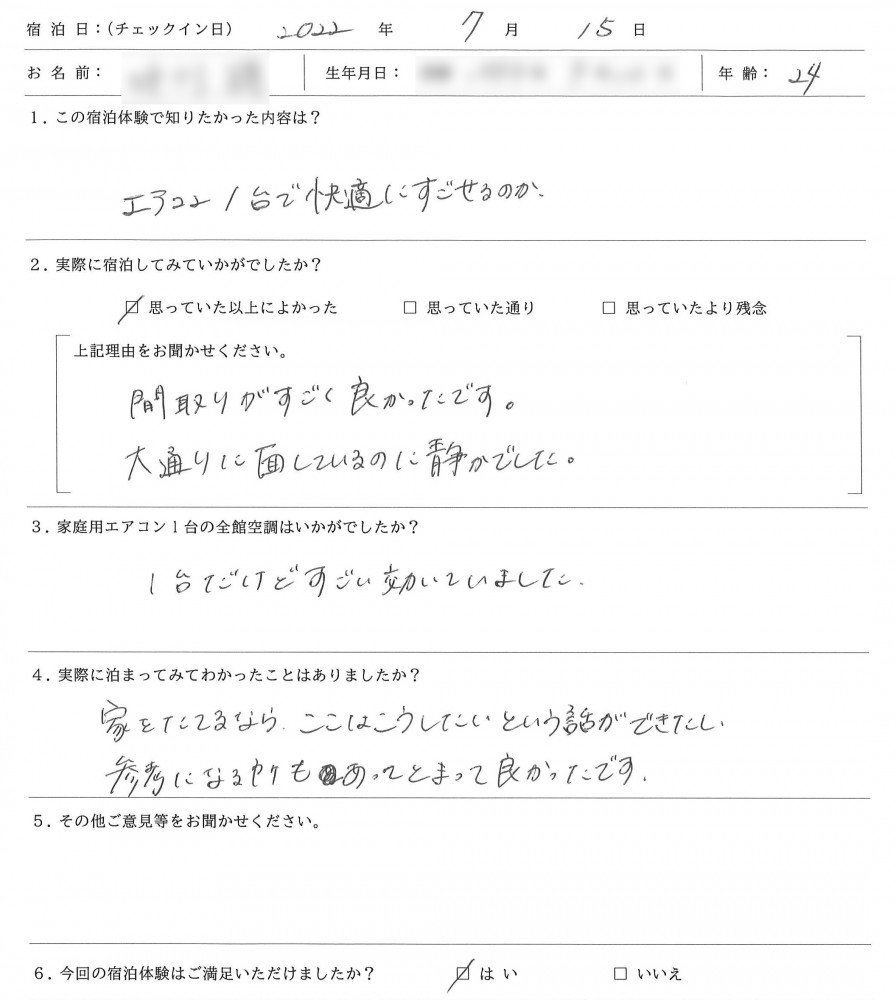 宿泊日:(チェックイン日) 2022 年 7 月 15 日
お名前: 生年月日: 年齢: 24
1. この宿泊体験で知りたかった内容は?
エアコン1台で快適にすごせるのか.
2. 実際に宿泊してみていかがでしたか?
☑ 思っていた以上によかった □ 思っていた通り □ 思っていたより残念
上記理由をお聞かせください。
間取りがすごく良かったです。
大通りに面しているのに静かでした。
3. 家庭用エアコン1台の全館空調はいかがでしたか?
1台だけどすごい効いていました.
4. 実際に泊まってみてわかったことはありましたか?
家をたてるなら. ここはこうしたいという話ができたし.
参考になる所もあってとまって良かったです.
5. その他ご意見等をお聞かせください。
6. 今回の宿泊体験はご満足いただけましたか? ☑ はい □ いいえ